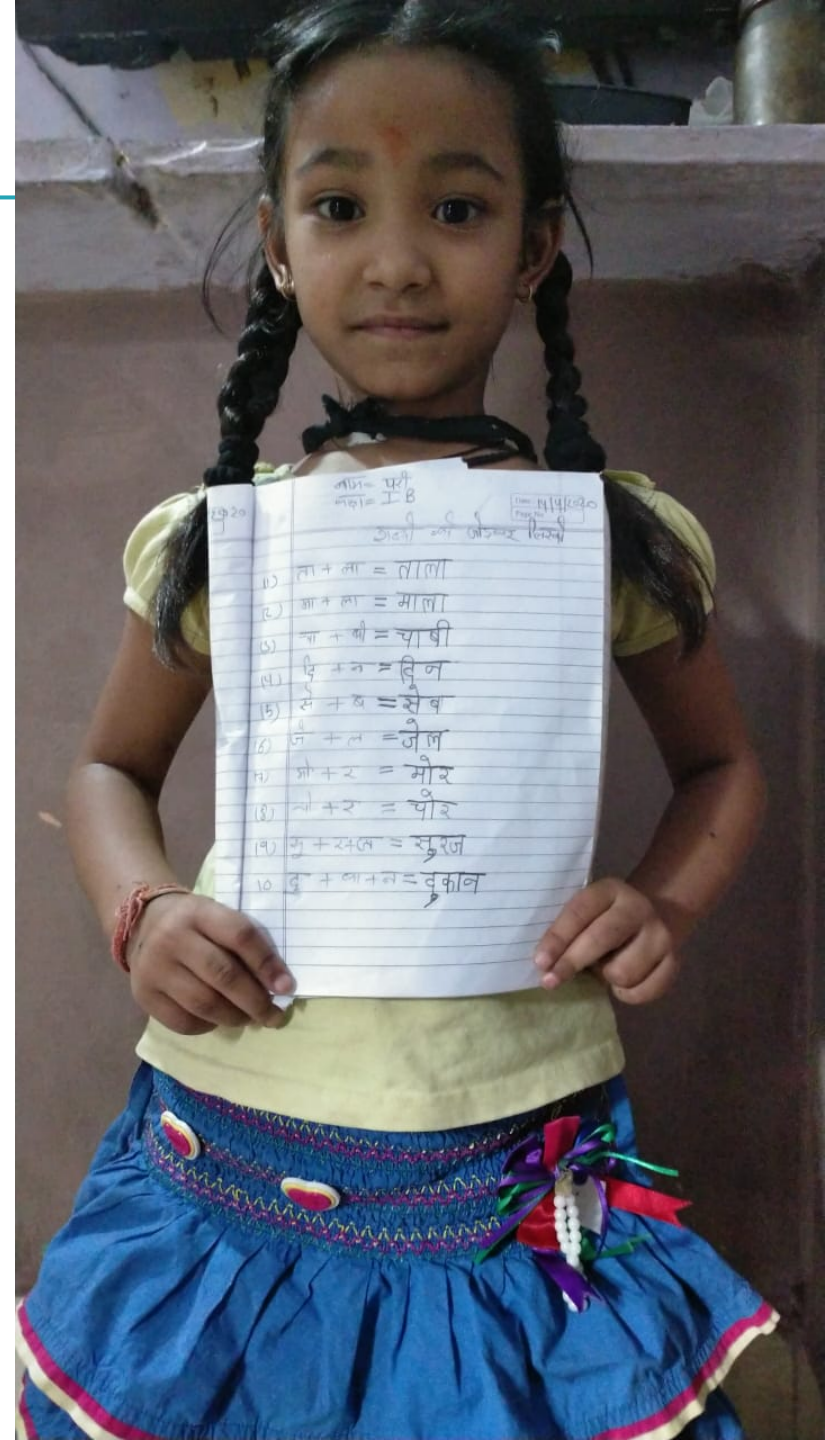 नाम= परी
कक्षा= I B
Date 14/9/2020
Page No.
शब्दों को जोड़कर लिखो
(1) ता + ला = ताला
(2) मा + ला = माला
(3) चा + बी = चाबी
(4) दि + न = दिन
(5) से + ब = सेब
(6) जे + ल = जेल
(7) मो + र = मोर
(8) चो + र = चोर
(9) सु + र+ज = सुरज
10 दु + का+न = दुकान